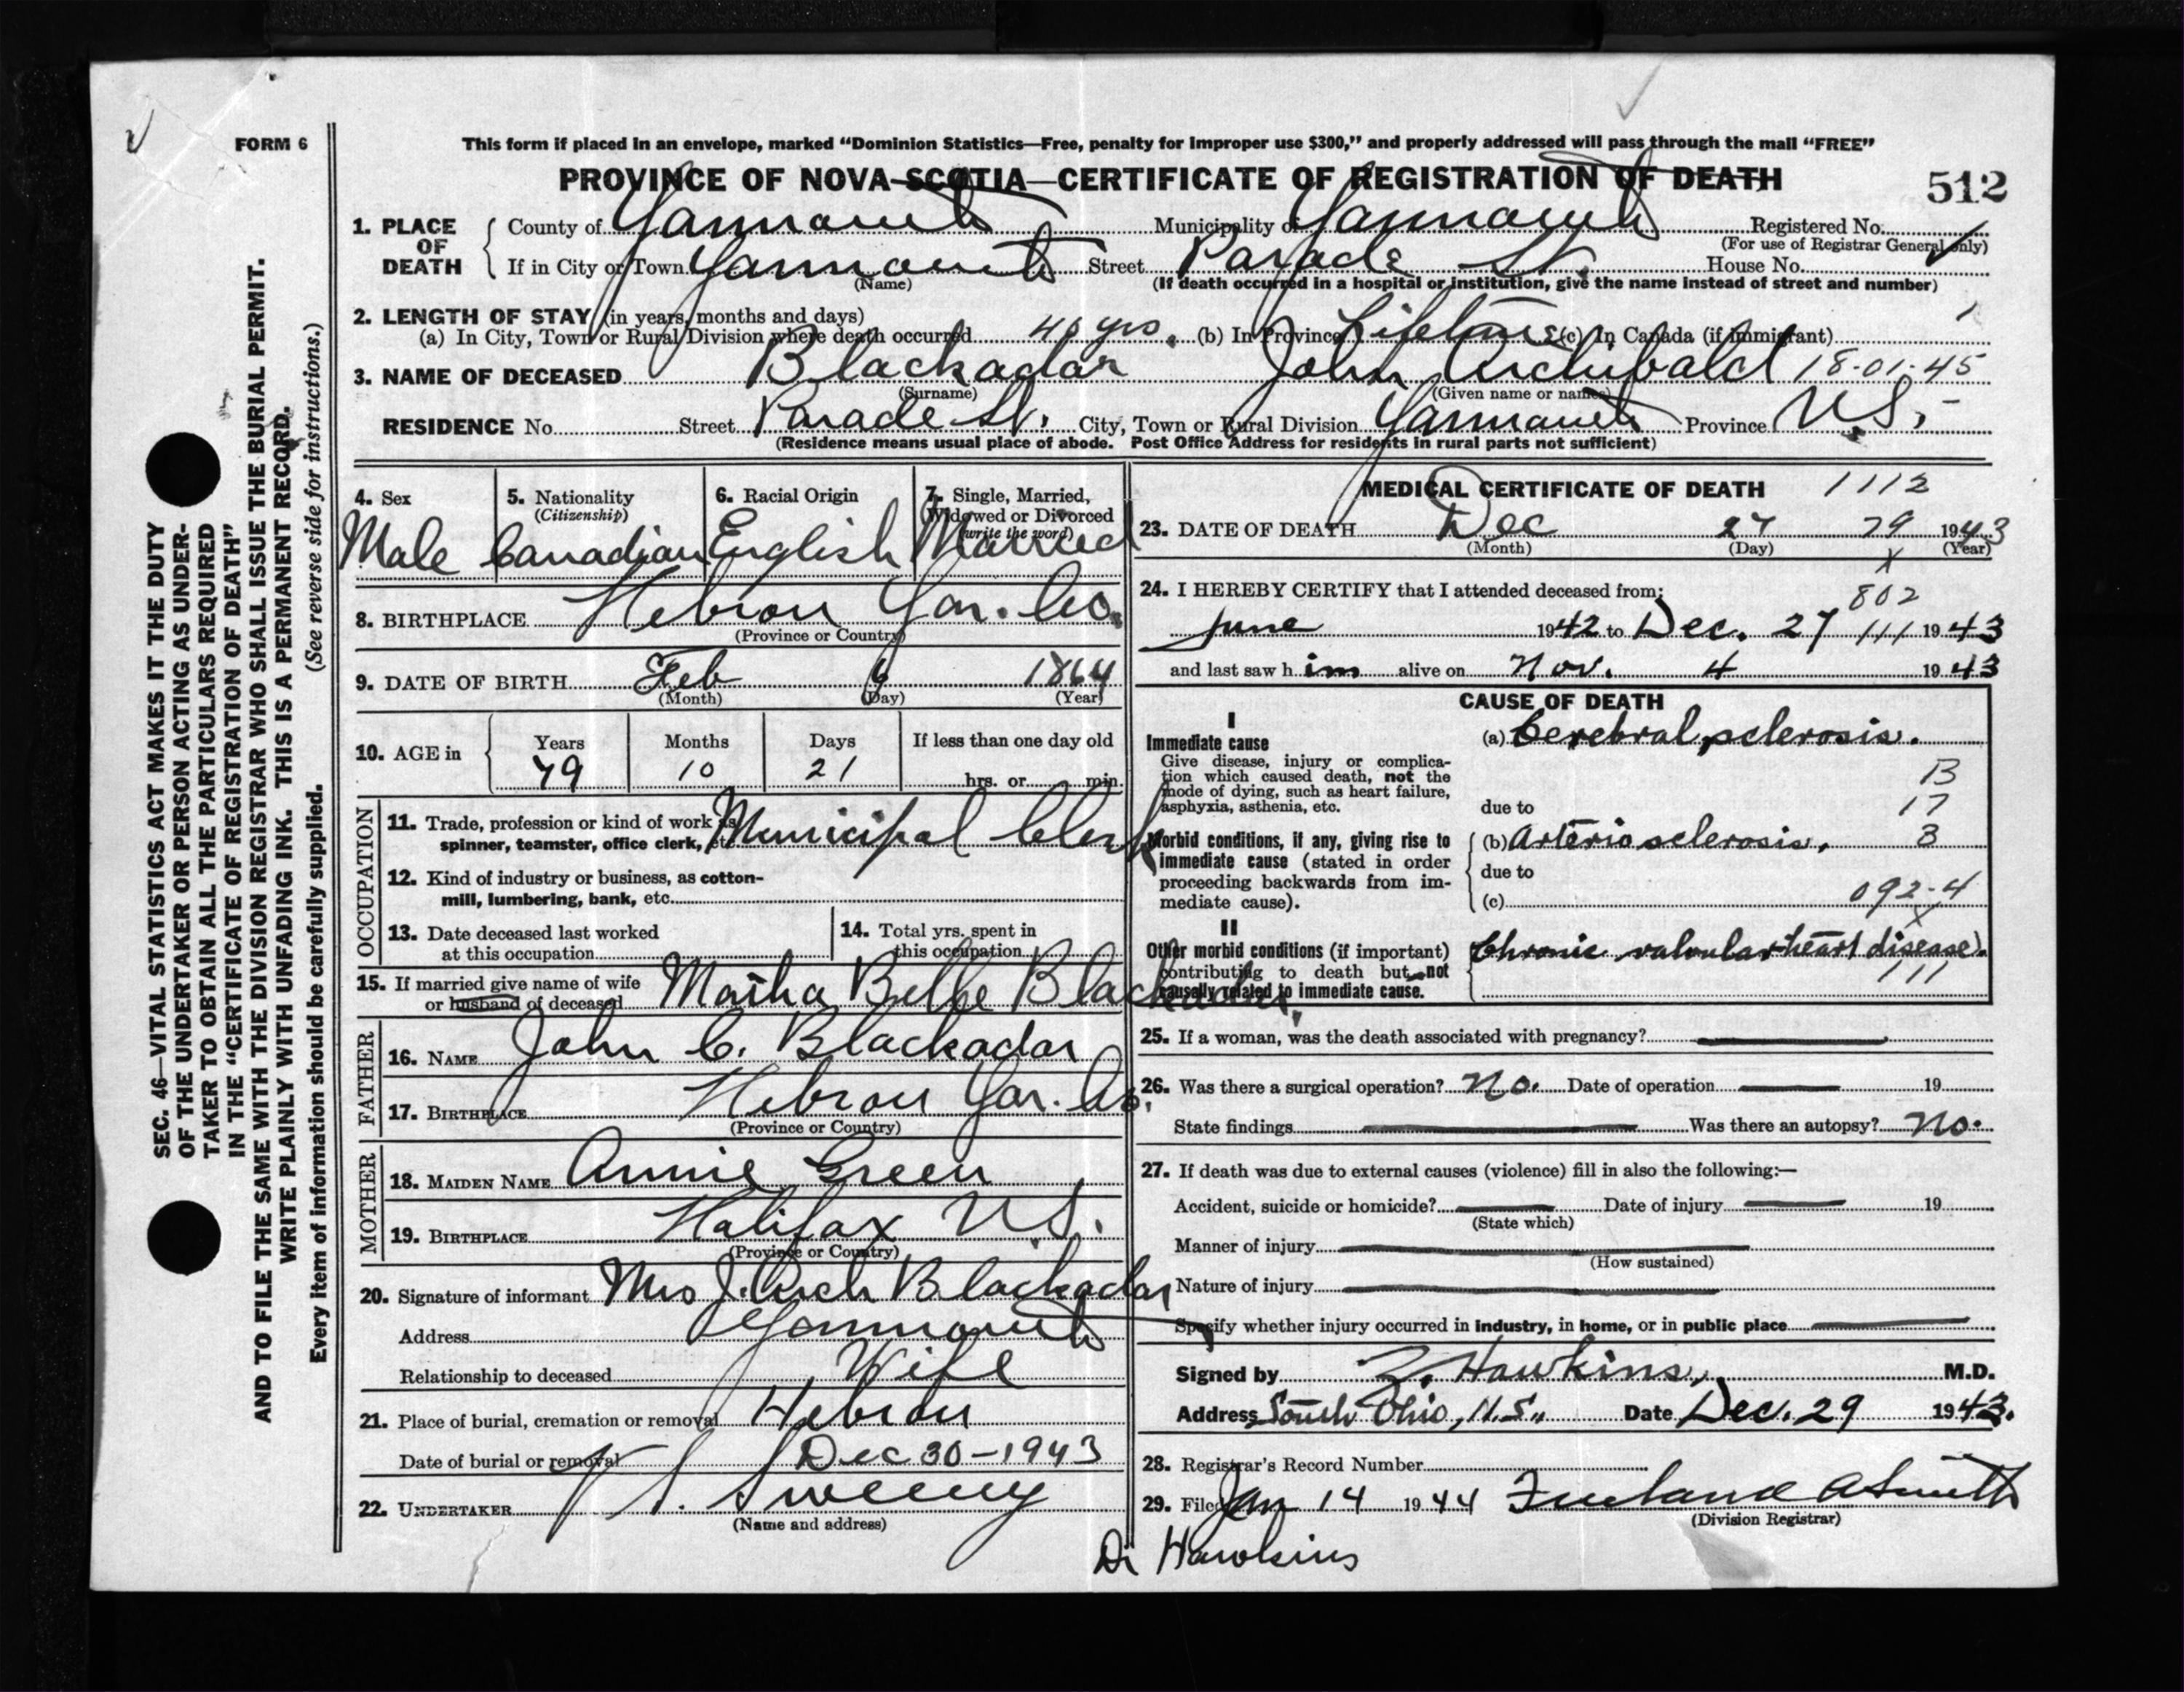 FORM 6
This form if placed in an envelope, marked “Dominion Statistics—Free, penalty for improper use $300,” and properly addressed will pass through the mail “FREE”
PROVINCE OF NOVA SCOTIA—CERTIFICATE OF REGISTRATION OF DEATH
512
1. PLACE OF DEATH County of Yarmouth Municipality of Yarmouth Registered No.
(For use of Registrar General only)
If in City or Town Yarmouth Street Parade St. House No.
(Name) (If death occurred in a hospital or institution, give the name instead of street and number)
2. LENGTH OF STAY (in years, months and days)
(a) In City, Town or Rural Division where death occurred yrs. (b) In Province Lifetime (c) In Canada (if immigrant)
3. NAME OF DECEASED Blackadar John Archibald 18-01-45
(Surname) (Given name or names)
RESIDENCE No. Street Parade St. City, Town or Rural Division Yarmouth Province N.S.
(Residence means usual place of abode. Post Office Address for residents in rural parts not sufficient)
4. Sex 5. Nationality 6. Racial Origin 7. Single, Married,
(Citizenship) Widowed or Divorced
(write the word)
Male Canadian English Married
8. BIRTHPLACE Hebron Yar. Co.
(Province or Country)
9. DATE OF BIRTH Feb 6 1864
(Month) (Day) (Year)
10. AGE in Years Months Days If less than one day old
79 10 21 hrs. or min.
OCCUPATION
11. Trade, profession or kind of work as
spinner, teamster, office clerk, etc. Municipal Clerk
12. Kind of industry or business, as cotton-
mill, lumbering, bank, etc.
13. Date deceased last worked
at this occupation
14. Total yrs. spent in
this occupation
15. If married give name of wife
or husband of deceased Martha Belle Blackadar
FATHER
16. NAME John C. Blackadar
17. BIRTHPLACE Hebron Yar. Co.
(Province or Country)
MOTHER
18. MAIDEN NAME Annie Green
19. BIRTHPLACE Halifax N.S.
(Province or Country)
20. Signature of informant Mrs J. Arch Blackadar
Address Yarmouth
Relationship to deceased Wife
21. Place of burial, cremation or removal Hebron
Date of burial or removal Dec 30-1943
22. UNDERTAKER S. Sweeny
(Name and address)
MEDICAL CERTIFICATE OF DEATH 1112
23. DATE OF DEATH Dec 27 79 1943
(Month) (Day) (Year)
24. I HEREBY CERTIFY that I attended deceased from:
802
June 1942 to Dec. 27 111 1943
and last saw him alive on Nov. 4 1943
CAUSE OF DEATH
I
Immediate cause (a) Cerebral sclerosis.
Give disease, injury or complica-
tion which caused death, not the
mode of dying, such as heart failure,
asphyxia, asthenia, etc. due to
B
17
3
Morbid conditions, if any, giving rise to (b) Arteriosclerosis.
immediate cause (stated in order
proceeding backwards from im- due to
mediate cause). (c) 092-4
II
Other morbid conditions (if important) Chronic valvular heart disease.
contributing to death but not 111
causally related to immediate cause.
25. If a woman, was the death associated with pregnancy?
26. Was there a surgical operation? No. Date of operation 19
State findings Was there an autopsy? No.
27. If death was due to external causes (violence) fill in also the following:—
Accident, suicide or homicide? Date of injury 19
(State which)
Manner of injury
(How sustained)
Nature of injury
Specify whether injury occurred in industry, in home, or in public place
Signed by Z. Hawkins, M.D.
Address South Ohio, N.S., Date Dec. 29 1943.
28. Registrar's Record Number
29. Filed Jan 14 1944 Freeland A Smith
(Division Registrar)
Dr Hawkins
SEC. 46—VITAL STATISTICS ACT MAKES IT THE DUTY
OF THE UNDERTAKER OR PERSON ACTING AS UNDER-
TAKER TO OBTAIN ALL THE PARTICULARS REQUIRED
IN THE “CERTIFICATE OF REGISTRATION OF DEATH”
AND TO FILE THE SAME WITH THE DIVISION REGISTRAR WHO SHALL ISSUE THE BURIAL PERMIT.
WRITE PLAINLY WITH UNFADING INK. THIS IS A PERMANENT RECORD.
Every item of information should be carefully supplied. (See reverse side for instructions.)